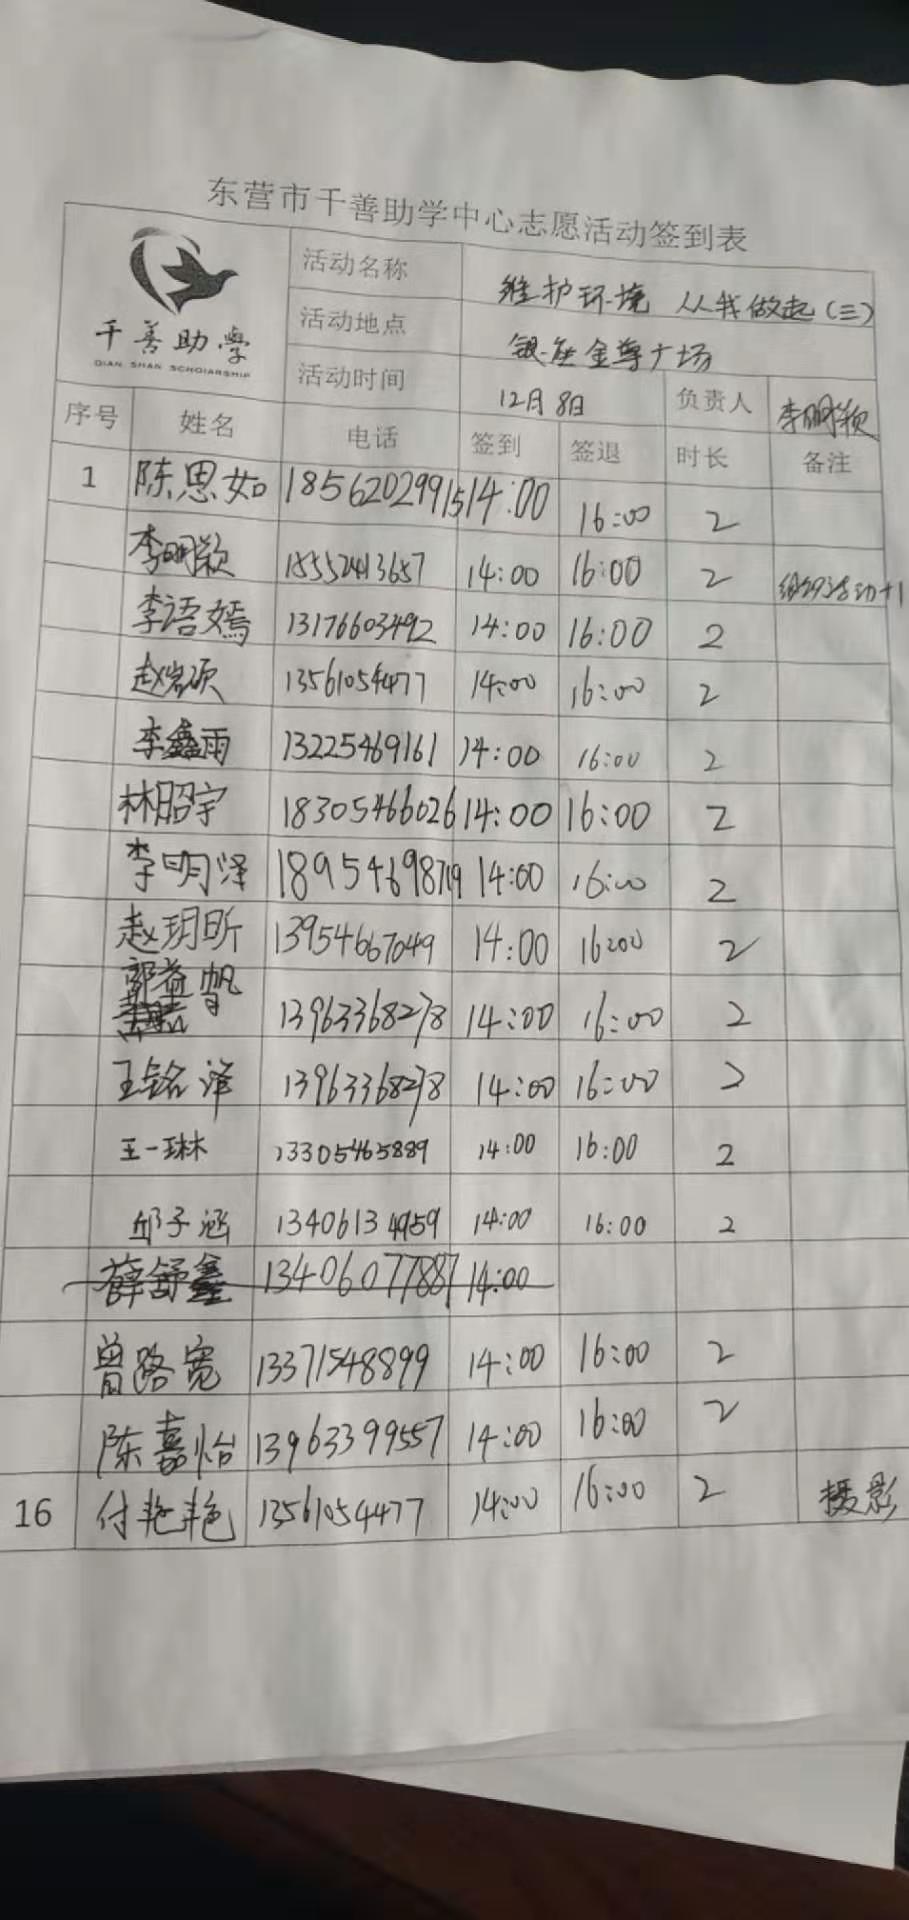 东营市千善助学中心志愿活动签到表
千善助学
QIAN SHAN SCHOIARSHIP
活动名称 维护环境 从我做起(三)
活动地点 银座金尊广场
活动时间 12月8日 负责人 李明颖
序号 姓名 电话 签到 签退 时长 备注
1 陈思如 18562029915 14:00 16:00 2
李明颖 15552413657 14:00 16:00 2 组织活动+1
李语嫣 13176603492 14:00 16:00 2
赵岩硕 13561054477 14:00 16:00 2
李鑫雨 13225469161 14:00 16:00 2
林昭宇 18305466026 14:00 16:00 2
李明泽 18954698719 14:00 16:00 2
赵玥昕 13954667049 14:00 16:00 2
郭益帆 13963368278 14:00 16:00 2
王铭泽 13963368278 14:00 16:00 2
王一琳 13305465889 14:00 16:00 2
邱子涵 13406134959 14:00 16:00 2
薛舒鑫 13406077887 14:00
曾路宽 13371548899 14:00 16:00 2
陈嘉怡 13963399557 14:00 16:00 2
16 付艳艳 13561054477 14:00 16:00 2 摄影